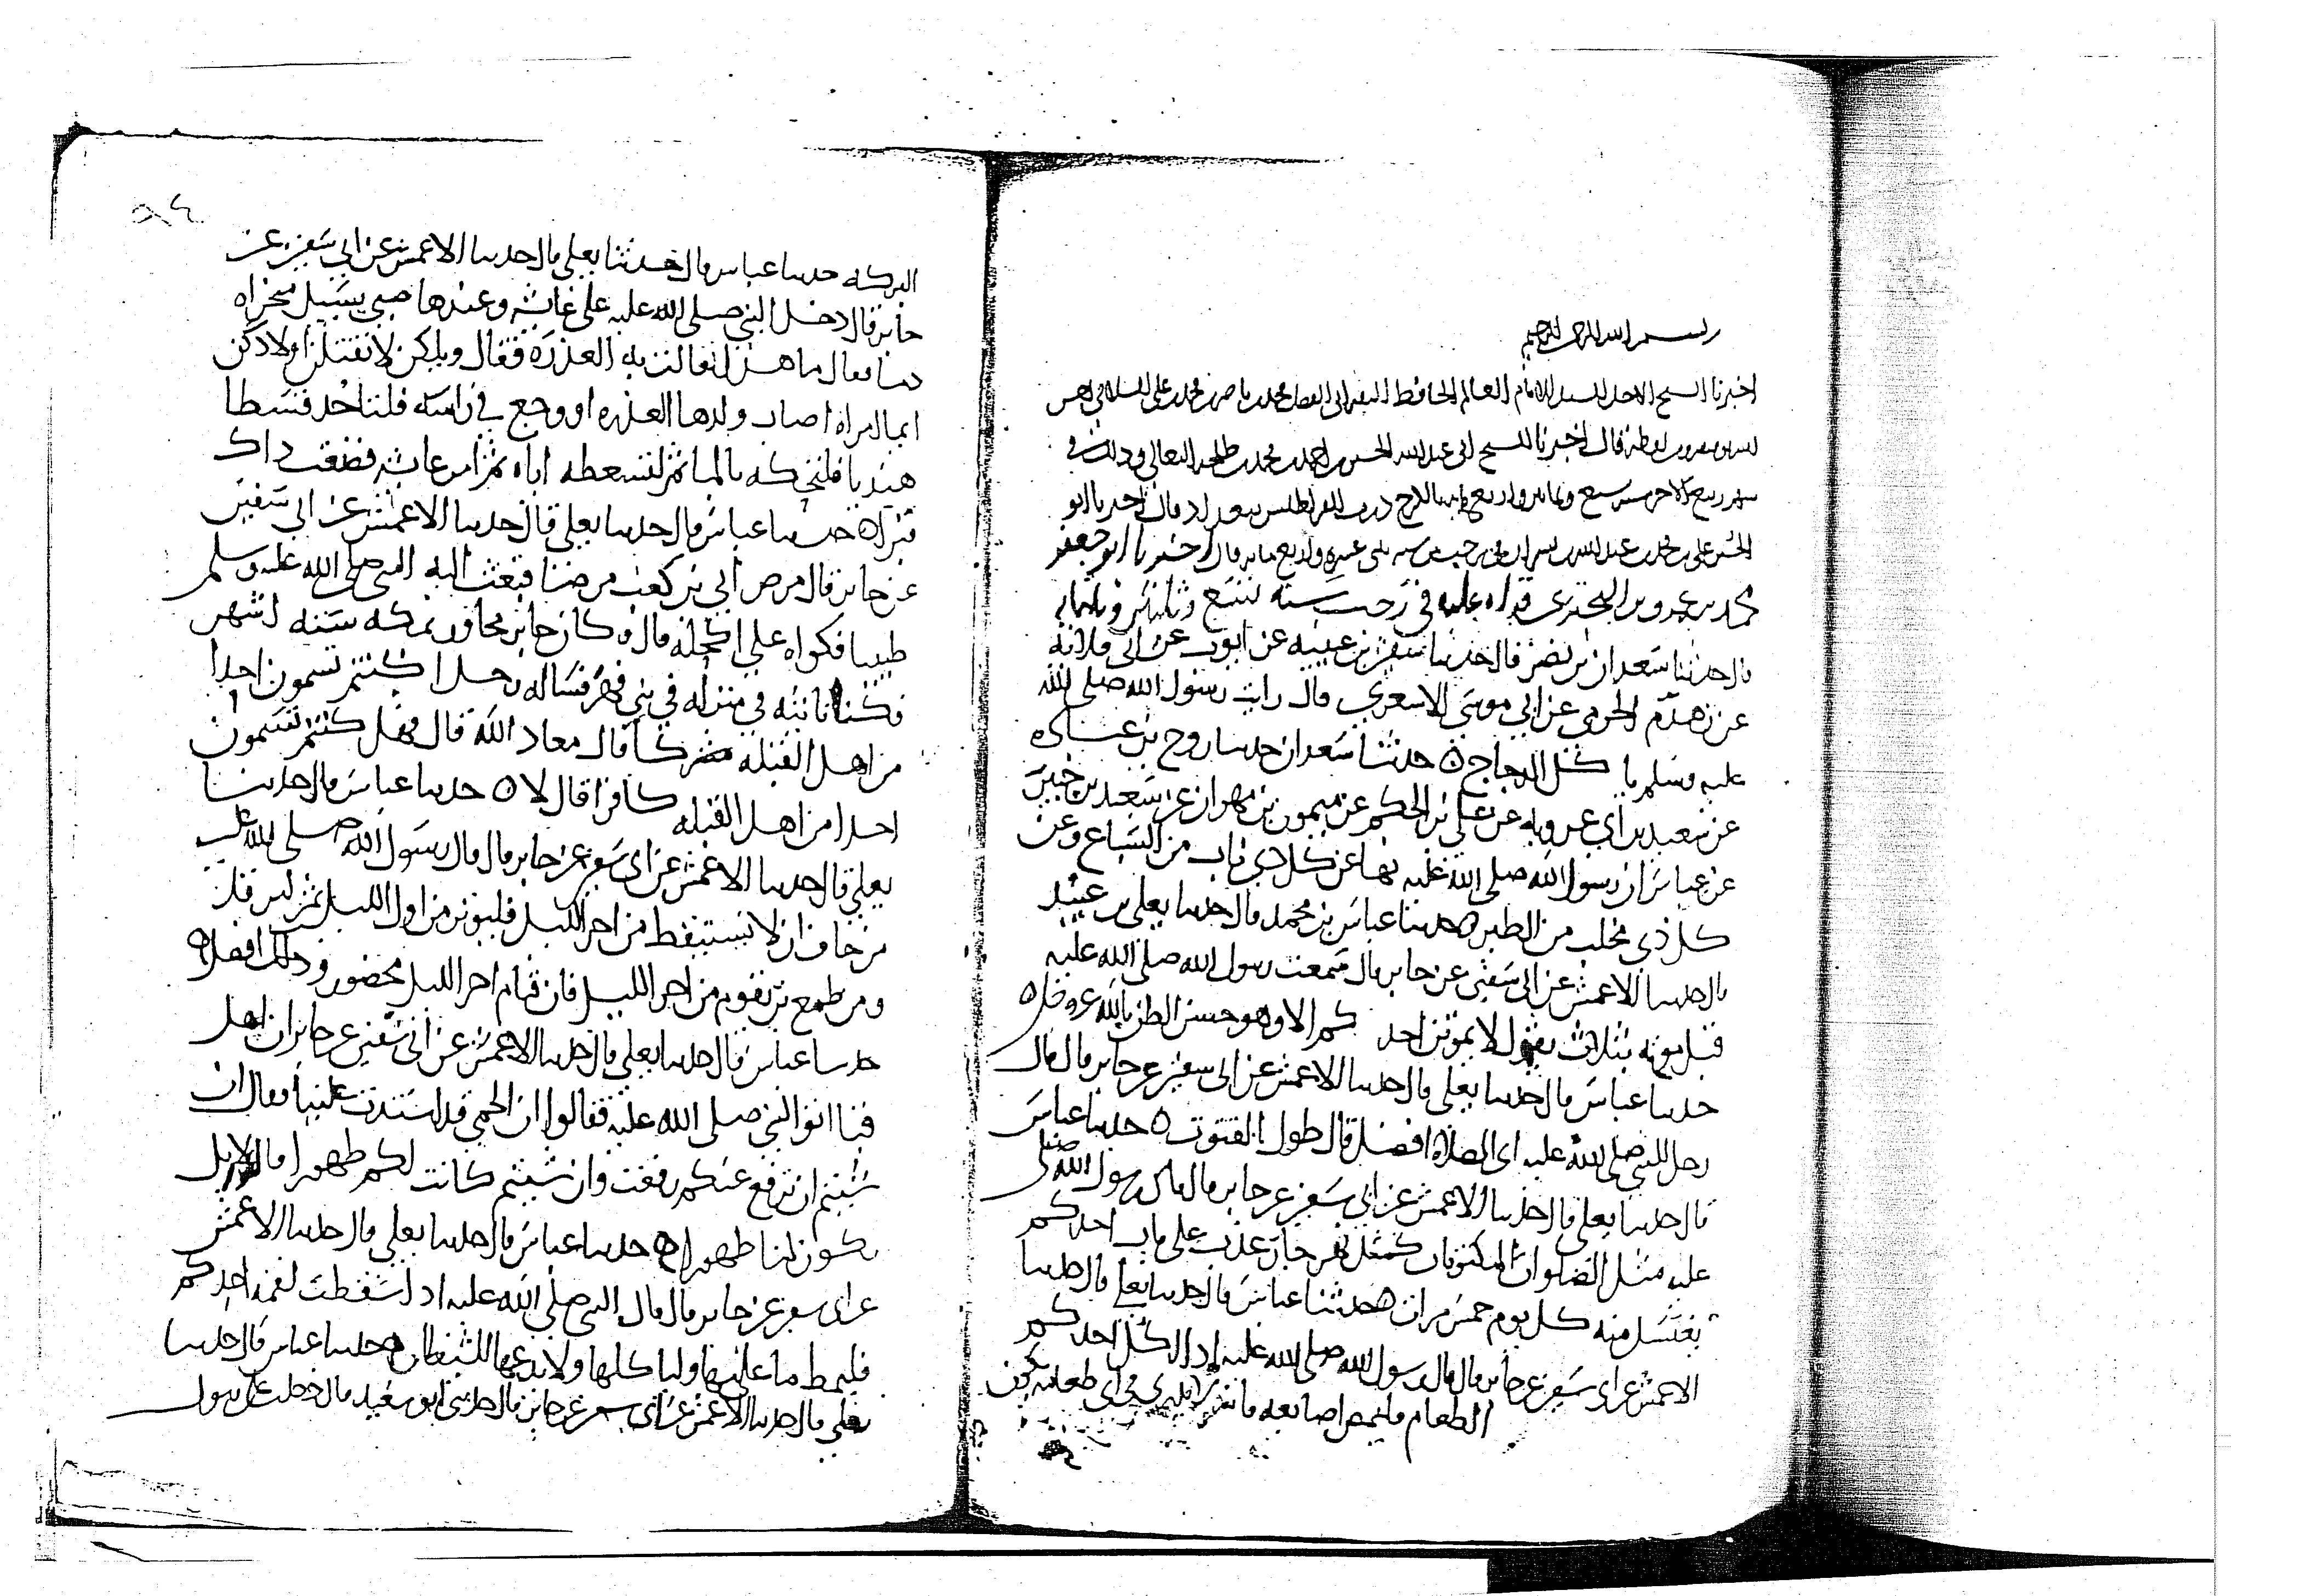 بسم الله الرحمن الرحيم
اخبرنا الشيخ الاجل السيد الامام العالم الحافظ ابي الفضل محمد بن ناصر بن محمد بن علي السلامي
قال اخبرنا الشيخ ابي عبد الله الحسين بن احمد بن محمد بن طلحه النعالي وذلك في
شهر ربيع الاخر سنه سبع وثمانين واربع مايه قال اخبرنا ابو
الحسين علي بن محمد بن عبد الله بن بشران في رجب من سنه اثني عشره واربع مايه قال اخبرنا ابو جعفر
محمد بن عمرو بن البختري قراه عليه في رجب سنه تسع وثلاثين وثلثمايه
قال حدثنا سعدان بن نصر قال حدثنا سفين بن عيينه عن ايوب عن ابي قلابه
عن زهدم الجرمي عن ابي موسي الاشعري قال رايت رسول الله صلى الله
عليه وسلم ياكل الدجاج ه حدثنا سعدان حدثنا روح بن عباده
عن سعيد بن ابي عروبه عن علي بن الحكم عن ميمون بن مهران عن سعيد بن جبير
عن عباس ان رسول الله صلى الله عليه نها عن كل ذي ناب من السباع وعن
كل ذي مخلب من الطير ه حدثنا عباس بن محمد قال حدثنا يعلي بن عبيد
قال حدثنا الاعمش عن ابي سفين عن جابر قال سمعت رسول الله صلى الله عليه
قبل موته بثلاث يقول لا يموتن احدكم الا وهو حسن الظن بالله عز وجل ه
حدثنا عباس قال حدثنا يعلي قال حدثنا الاعمش عن ابي سفين عن جابر قال قال
رجل للنبي صلى الله عليه اي الصلاه افضل قال طول القنوت ه حدثنا عباس
قال حدثنا يعلي قال حدثنا الاعمش عن ابي سفين عن جابر قال قال رسول الله صلى
عليه مثل الصلوات المكتوبات كمثل نهر جار عذب على باب احدكم
يغتسل منه كل يوم خمس مرات ه حدثنا عباس قال حدثنا يعلي قال حدثنا
الاعمش عن ابي سفين عن جابر قال قال رسول الله صلى الله عليه اذا اكل احدكم
الطعام فليمص اصابعه فانه لا يدري في اي طعامه يكون
البركه حدثنا عباس قال حدثنا يعلي قال حدثنا الاعمش عن ابي سفين عن
جابر قال دخل النبي صلى الله عليه على عائشه وعندها صبي يسيل منخراه
دما فقال ما هذا فقالت به العذره فقال ويلكن لا تقتلن اولادكن
ايما امراه اصاب ولدها العذره او وجع في راسه فلتاخذ قسطا
هنديا فلتحكه بالما ثم لتسعطه اياه ثم امر عائشه فصنعت ذاك
فبرا ه حدثنا عباس قال حدثنا يعلي قال حدثنا الاعمش عن ابي سفين
عن جابر قال مرض ابي بن كعب مرضا فبعث اليه النبي صلى الله عليه وسلم
طبيبا فكواه على اكحله قال ه وكان جابر مجاور بمكه سته اشهر
فكنا ناتيه في منزله في بني فهر فساله رجل اكنتم تسمون احدا
من اهل القبله مشركا قال معاذ الله قال فهل كنتم تسمون
احدا من اهل القبله كافرا قال لا ه حدثنا عباس قال حدثنا
يعلي قال حدثنا الاعمش عن ابي سفين عن جابر قال قال رسول الله صلى الله عليه
من خاف ان لا يستيقظ من اخر الليل فليوتر من اول الليل ثم ليرقد
ومن طمع ان يقوم من اخر الليل فان قيام اخر الليل محضور وذلك افضل ه
حدثنا عباس قال حدثنا يعلي قال حدثنا الاعمش عن ابي سفين عن جابر ان اهل
قبا اتوا النبي صلى الله عليه فقالوا ان الحمي قد اشتدت علينا فقال ان
شيتم ان ترفع عنكم رفعت وان شيتم كانت لكم طهورا قالوا بل
تكون لنا طهورا ه حدثنا عباس قال حدثنا يعلي قال حدثنا الاعمش
عن ابي سفين عن جابر قال قال النبي صلى الله عليه اذا سقطت لقمه احدكم
فليمط ما عليها ولياكلها ولا يدعها للشيطان ه حدثنا عباس قال حدثنا
يعلي قال حدثنا الاعمش عن ابي سفين عن جابر قال حدثني ابو سعيد قال دخلت على رسول